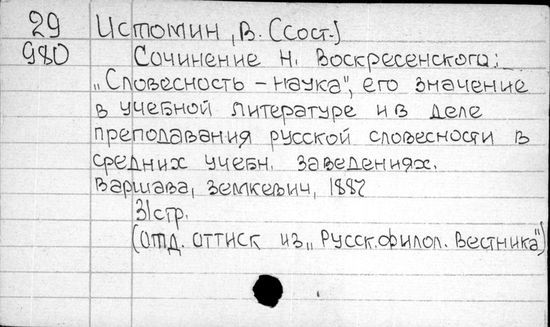 29 Истомин, В. (сост.)
980 Сочинение Н. Воскресенского:
„Словесность – наука", его значение
в учебной литературе и в деле
преподавания русской словесности в
средних учебн. заведениях.
Варшава, Земкевич, 1882
31стр.
(отд. оттиск из „Русск.филол. Вестника")